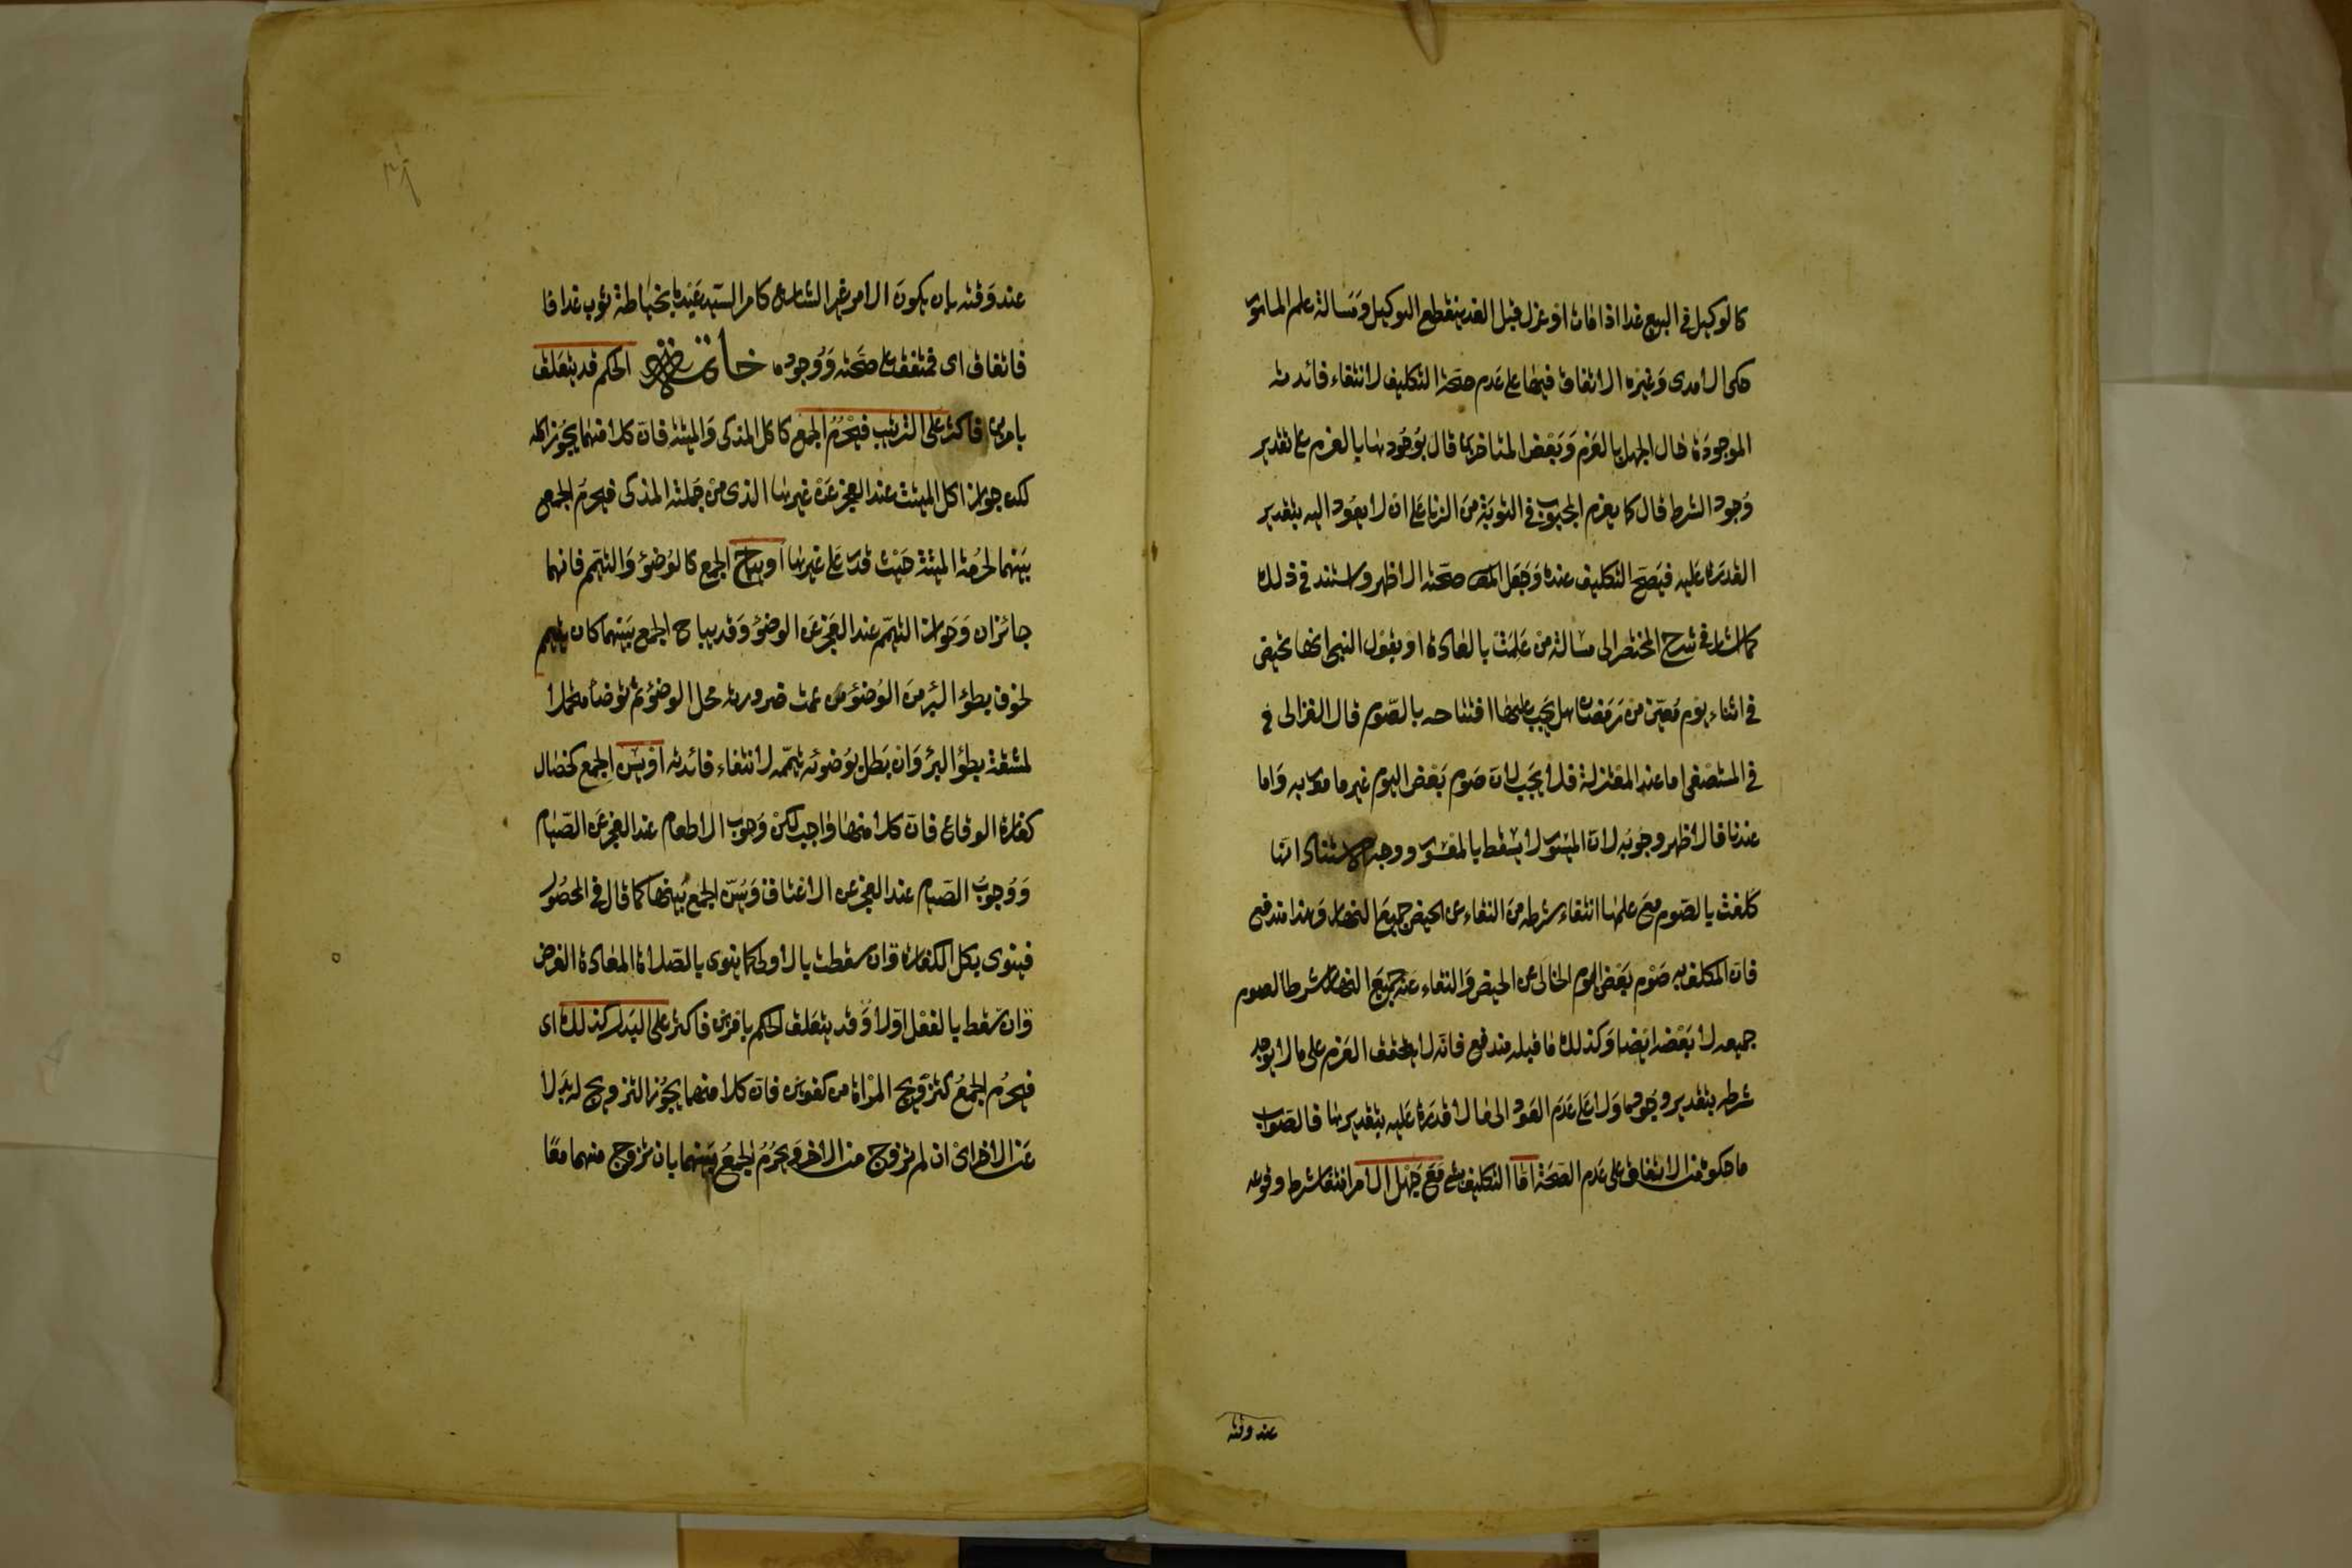 كالوكيل فى البيع غدا اذا مات او عزل قبل الغد ينقطع التوكيل ومسالة علم المامور
حكى الامدى وغيره الاتفاق فيها على عدم صحة التكليف لانتفاء فائدته
الموجودة حال الجهل بالعزم وبعض المتاخرين قال بوجودها بالعزم على تقدير
وجود الشرط قال كما يعزم المجبوب فى التوبة من الزنا على ان لا يعود اليه بتقدير
القدرة عليه فيصح التكليف عنده وجعل المص صحته الاظهر واستند فى ذلك
كما اشار فى شرح المختصر الى مسالة من علمت بالعادة او بقول النبى انها تحيض
فى اثناء يوم معين من رمضان هل يجب عليها افتتاحه بالصوم قال الغزالى فى
فى المستصفى اما عند المعتزلة فلا يجب لان صوم بعض اليوم غير مامور به واما
عندنا فالاظهر وجوبه لان الميسور لا يسقط بالمعسور ووجه الاستناد انها
كلفت بالصوم مع علمها انتفاء شرطه من النقاء عن الحيض جميع النهار وهذا مندفع
فان المكلف به صوم بعض اليوم الخالى عن الحيض والنقاء عنه جميع النهار شرط الصوم
جميعه لا بعضه ايضا وكذلك ما قبله مندفع فانه لا يتحقق العزم على ما لا يوجد
شرطه بتقدير وجوده ولا على عدم العود الى ما لا قدرة عليه بتقديرها فالصواب
ما حكوه من الاتفاق على عدم الصحة اما التكليف بشى مع جهل الامر انتفا شرط وقوعه
عند وقته
عند وقته بان يكون الامر غير الشارع كامر السيد عبده بخياطة ثوب غدا فا
فاتفاق اى فمتفق على صحته ووجوده خاتمة الحكم قد يتعلق
بامرين فاكثر على الترتيب فيحرم الجمع كاكل المذكى والميتة فان كلا منهما يجوز اكله
لكن جواز اكل الميتة عند العجز عن غيرها الذى من جملته المذكى فيحرم الجمع
بينهما لحرمة الميتة حيث قدر على غيرها او يباح الجمع كالوضوء والتيمم فانهما
جائزان وجواز التيمم عند العجز عن الوضوء وقد يباح الجمع بينهما كان يتيمم
لخوف بطوء البرء من الوضوء من عمت ضرورته محل الوضوء ثم توضأ متحملا
لمشقة بطؤ البرء وان بطل بوضوئه تيممه لانتفاء فائدته او يسن الجمع كخصال
كفارة الوقاع فان كلا منها واجب لكن وجوب الاطعام عند العجز عن الصيام
ووجوب الصيام عند العجز عن الاعتاق ويسن الجمع بينها كما قال فى المحصول
فينوى بكل الكفارة وان سقطت بالاولى كما ينوى بالصلاة المعادة الفرض
وان سقط بالفعل اولا وقد يتعلق الحكم بامرين فاكثر على البدل كذلك اى
فيحرم الجمع كتزويج المراة من كفوين فان كلا منهما يجوز التزويج له بدلا
عن الاخر اى ان لم تزوج من الاخر ويحرم الجمع بينهما بان تزوج منهما معا